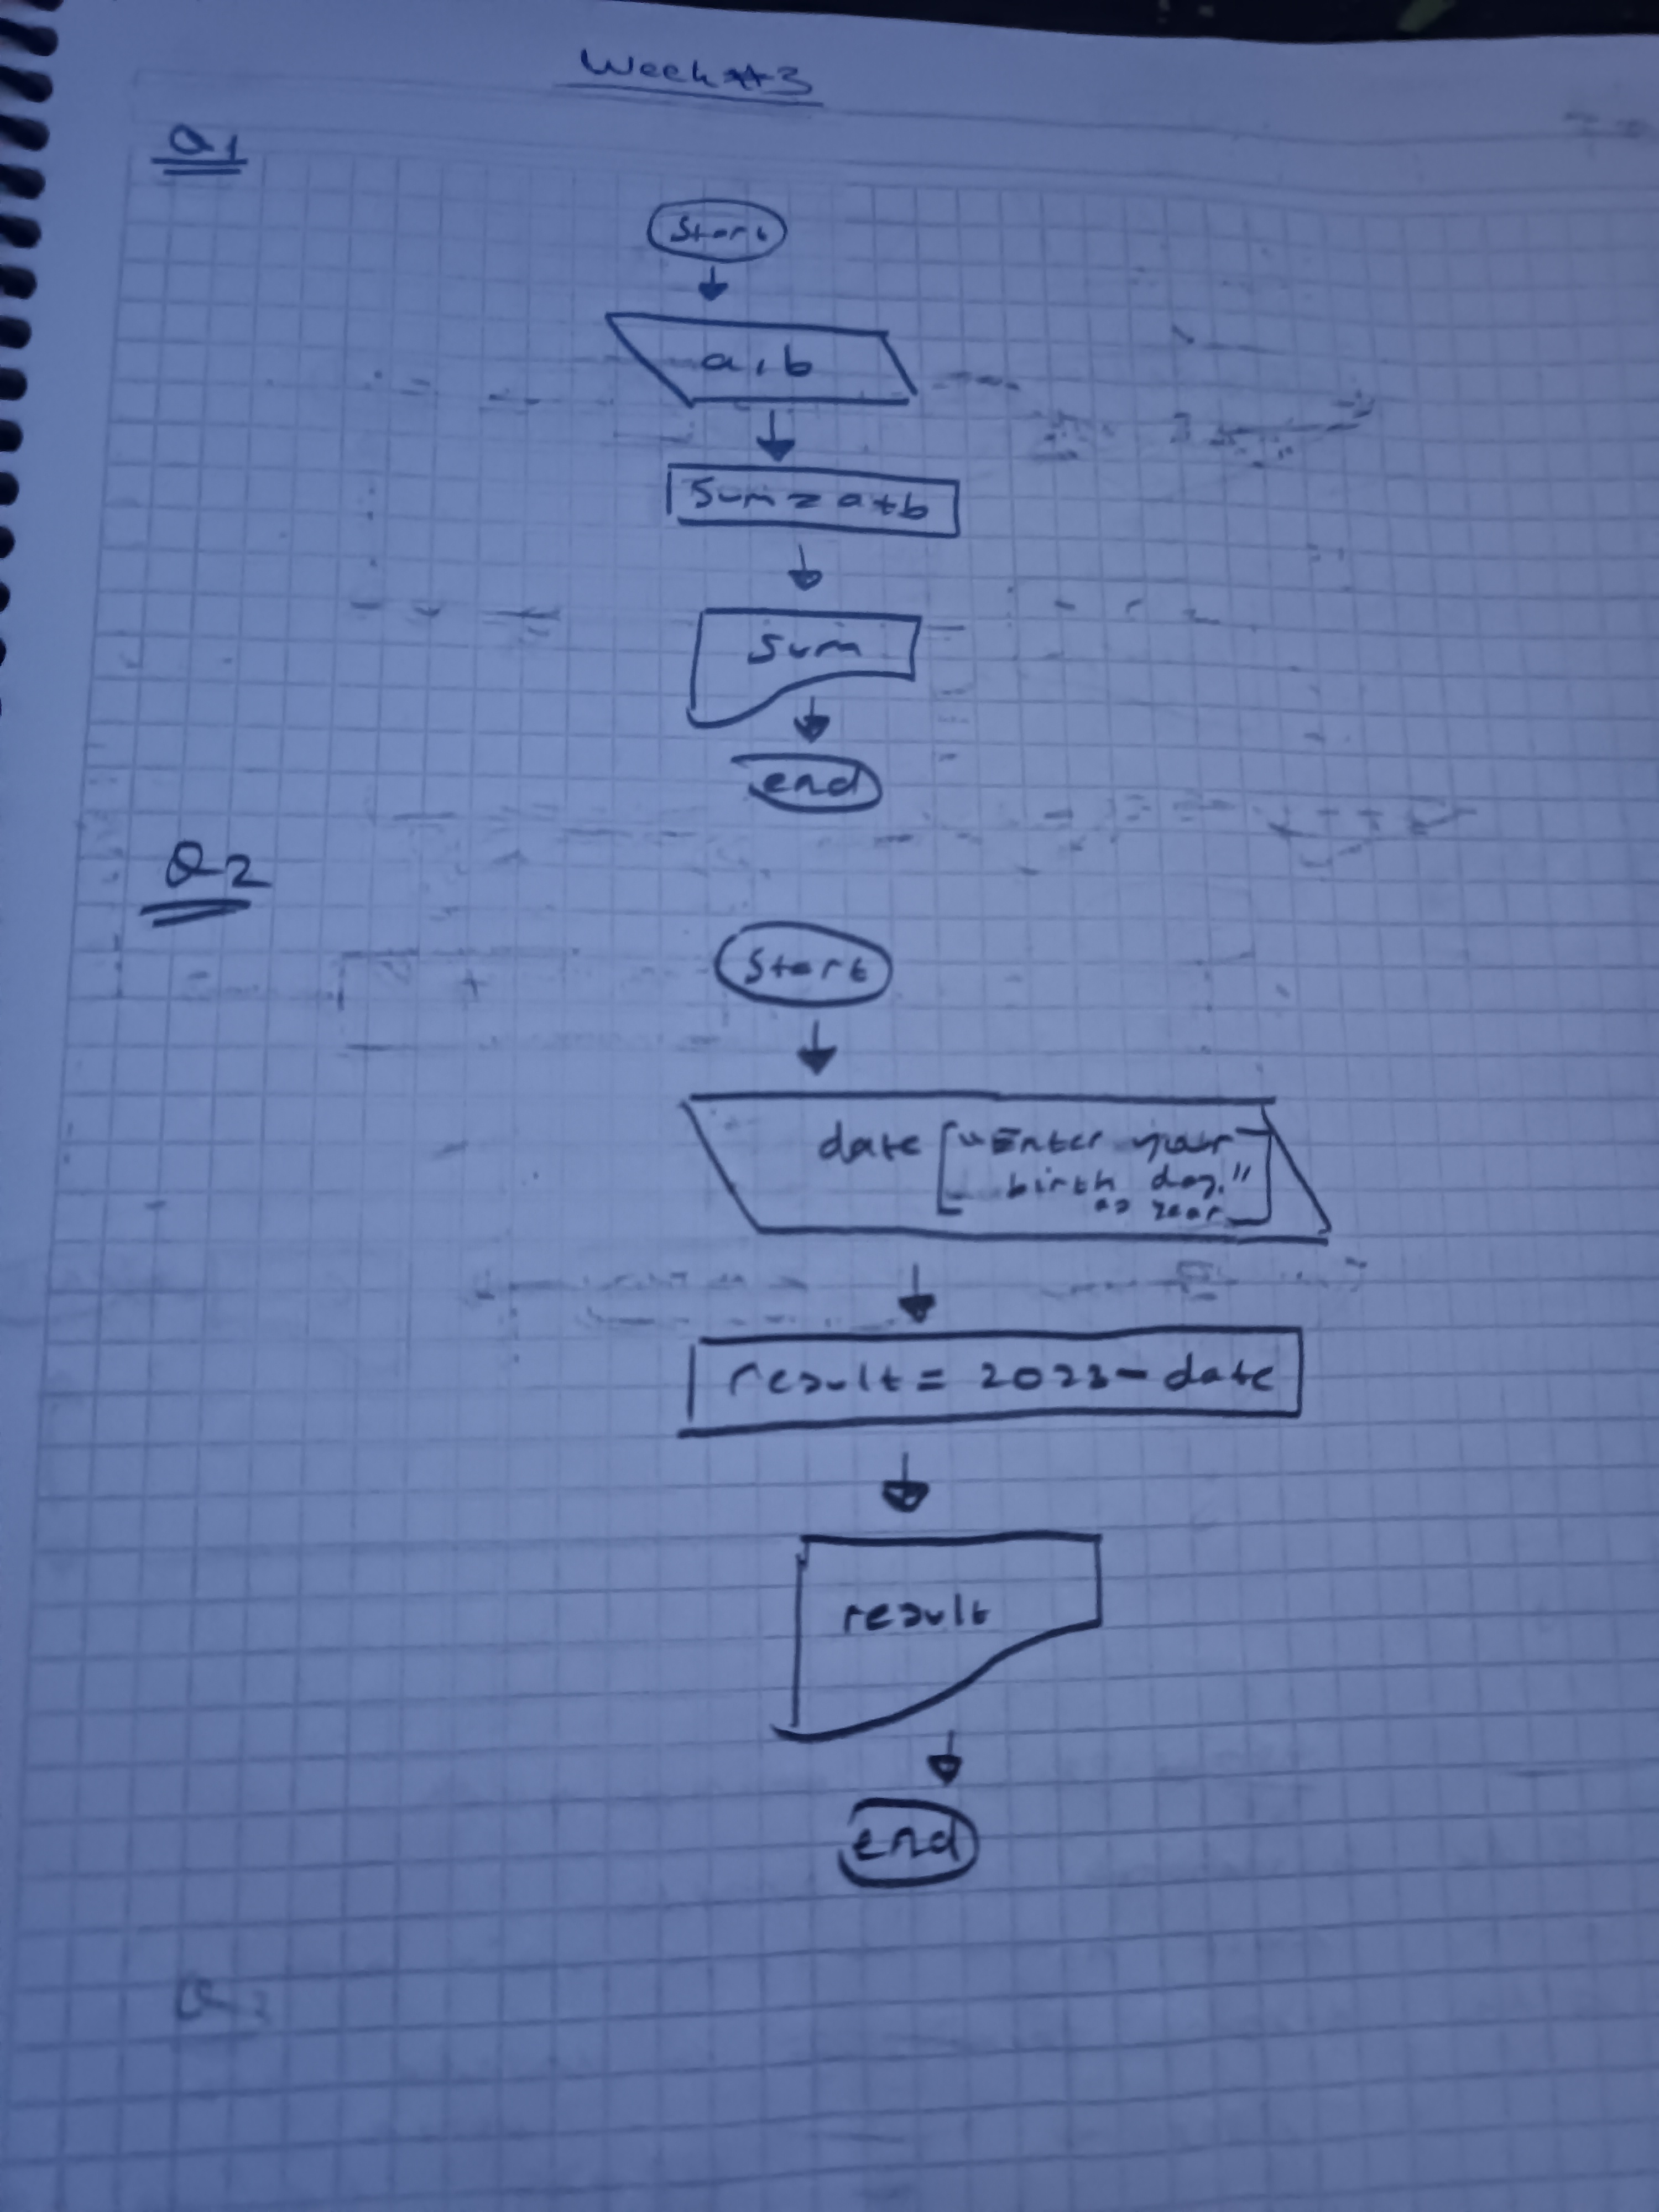 Week#3
Q1
Start
a, b
Sum = a+b
Sum
end
Q2
Start
date ["Enter your
birth day."
as year]
result = 2023 - date
result
end
Q